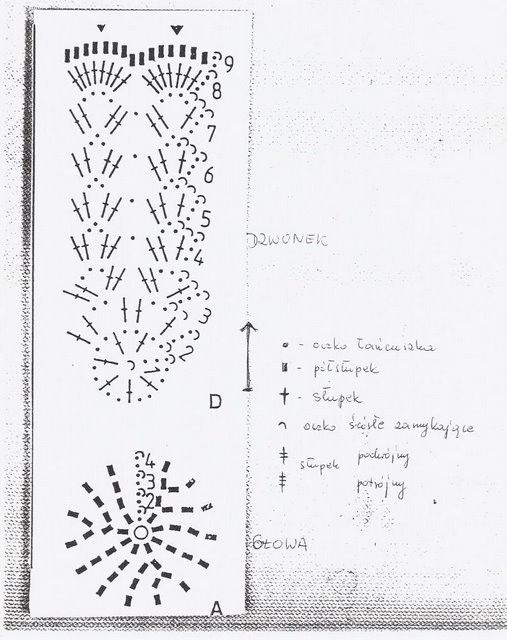 9
8
7
6
5
4
3
2
1
D
DZWONEK
• - oczko łańcuszka
- półsłupek
- słupek
oczko ścisłe zamykające
słupek podwójny
potrójny
4
3
2
GŁOWA
A